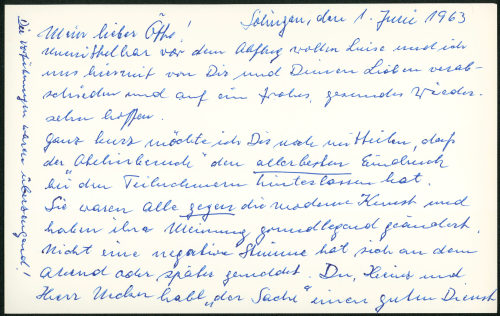 Solingen, den 1. Juni 1963
Mein lieber Otto!
Unmittelbar vor dem Abflug wollen Luise und ich
uns hiermit von Dir und Deinen Lieben verab-
schieden und auf ein frohes, gesundes Wieder-
sehn hoffen.
Ganz kurz möchte ich Dir noch mitteilen, daß
der "Atelierbesuch" den allerbesten Eindruck
bei den Teilnehmern hinterlassen hat.
Sie waren alle gegen die moderne Kunst und
haben ihre Meinung grundlegend geändert.
Nicht eine negative Stimme hat sich an dem
Abend oder später gemeldet. Du, Heinz und
Herr habt "der Sache" einen guten Dienst
Die Vorführungen waren überzeugend!